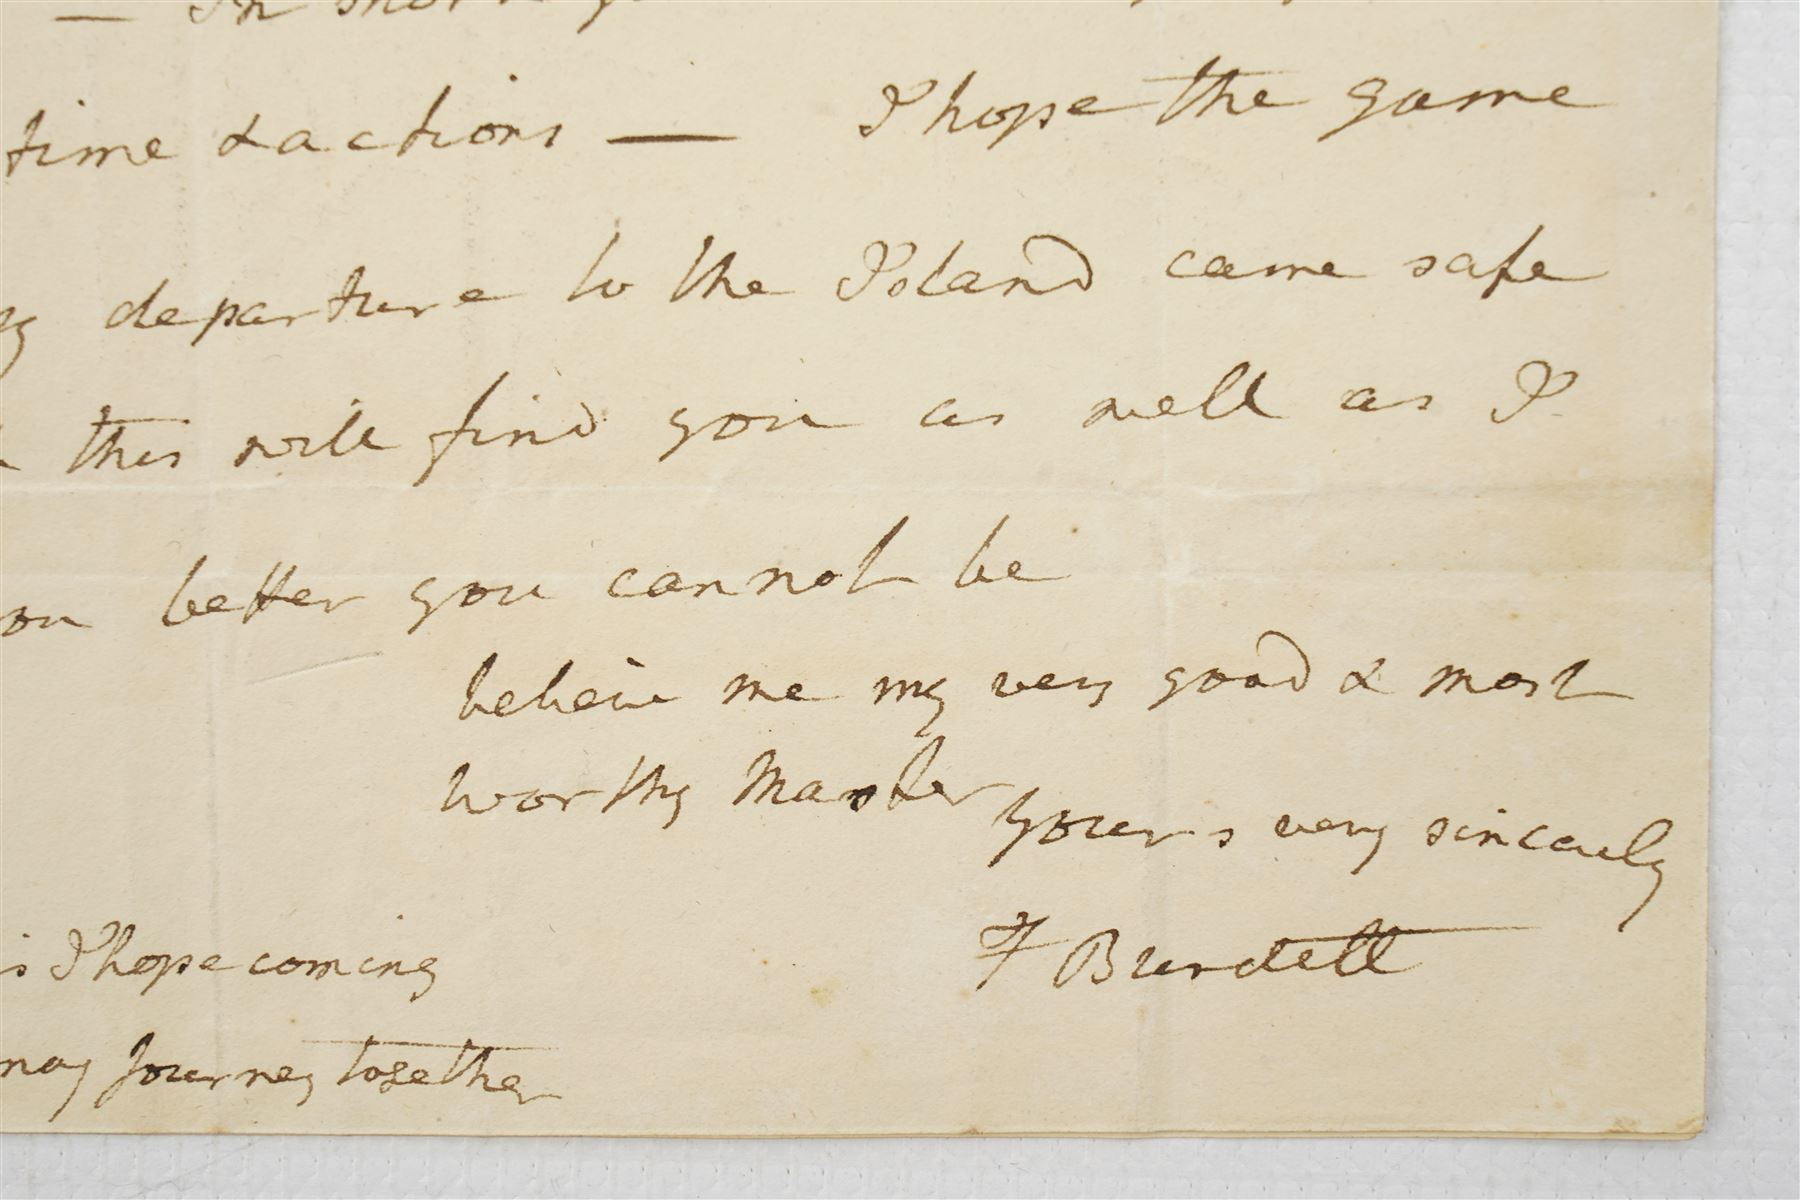 — In short
time & actions — I hope the game
departure to the Island came safe
this will find you as well as I
better you cannot be
believe me my very good & most
worthy Master
yours very sincerely
F Burdett
is I hope coming
may Journey together